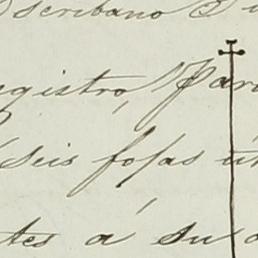 Escribano
egistro, Par
seis fojas ú
tes á su